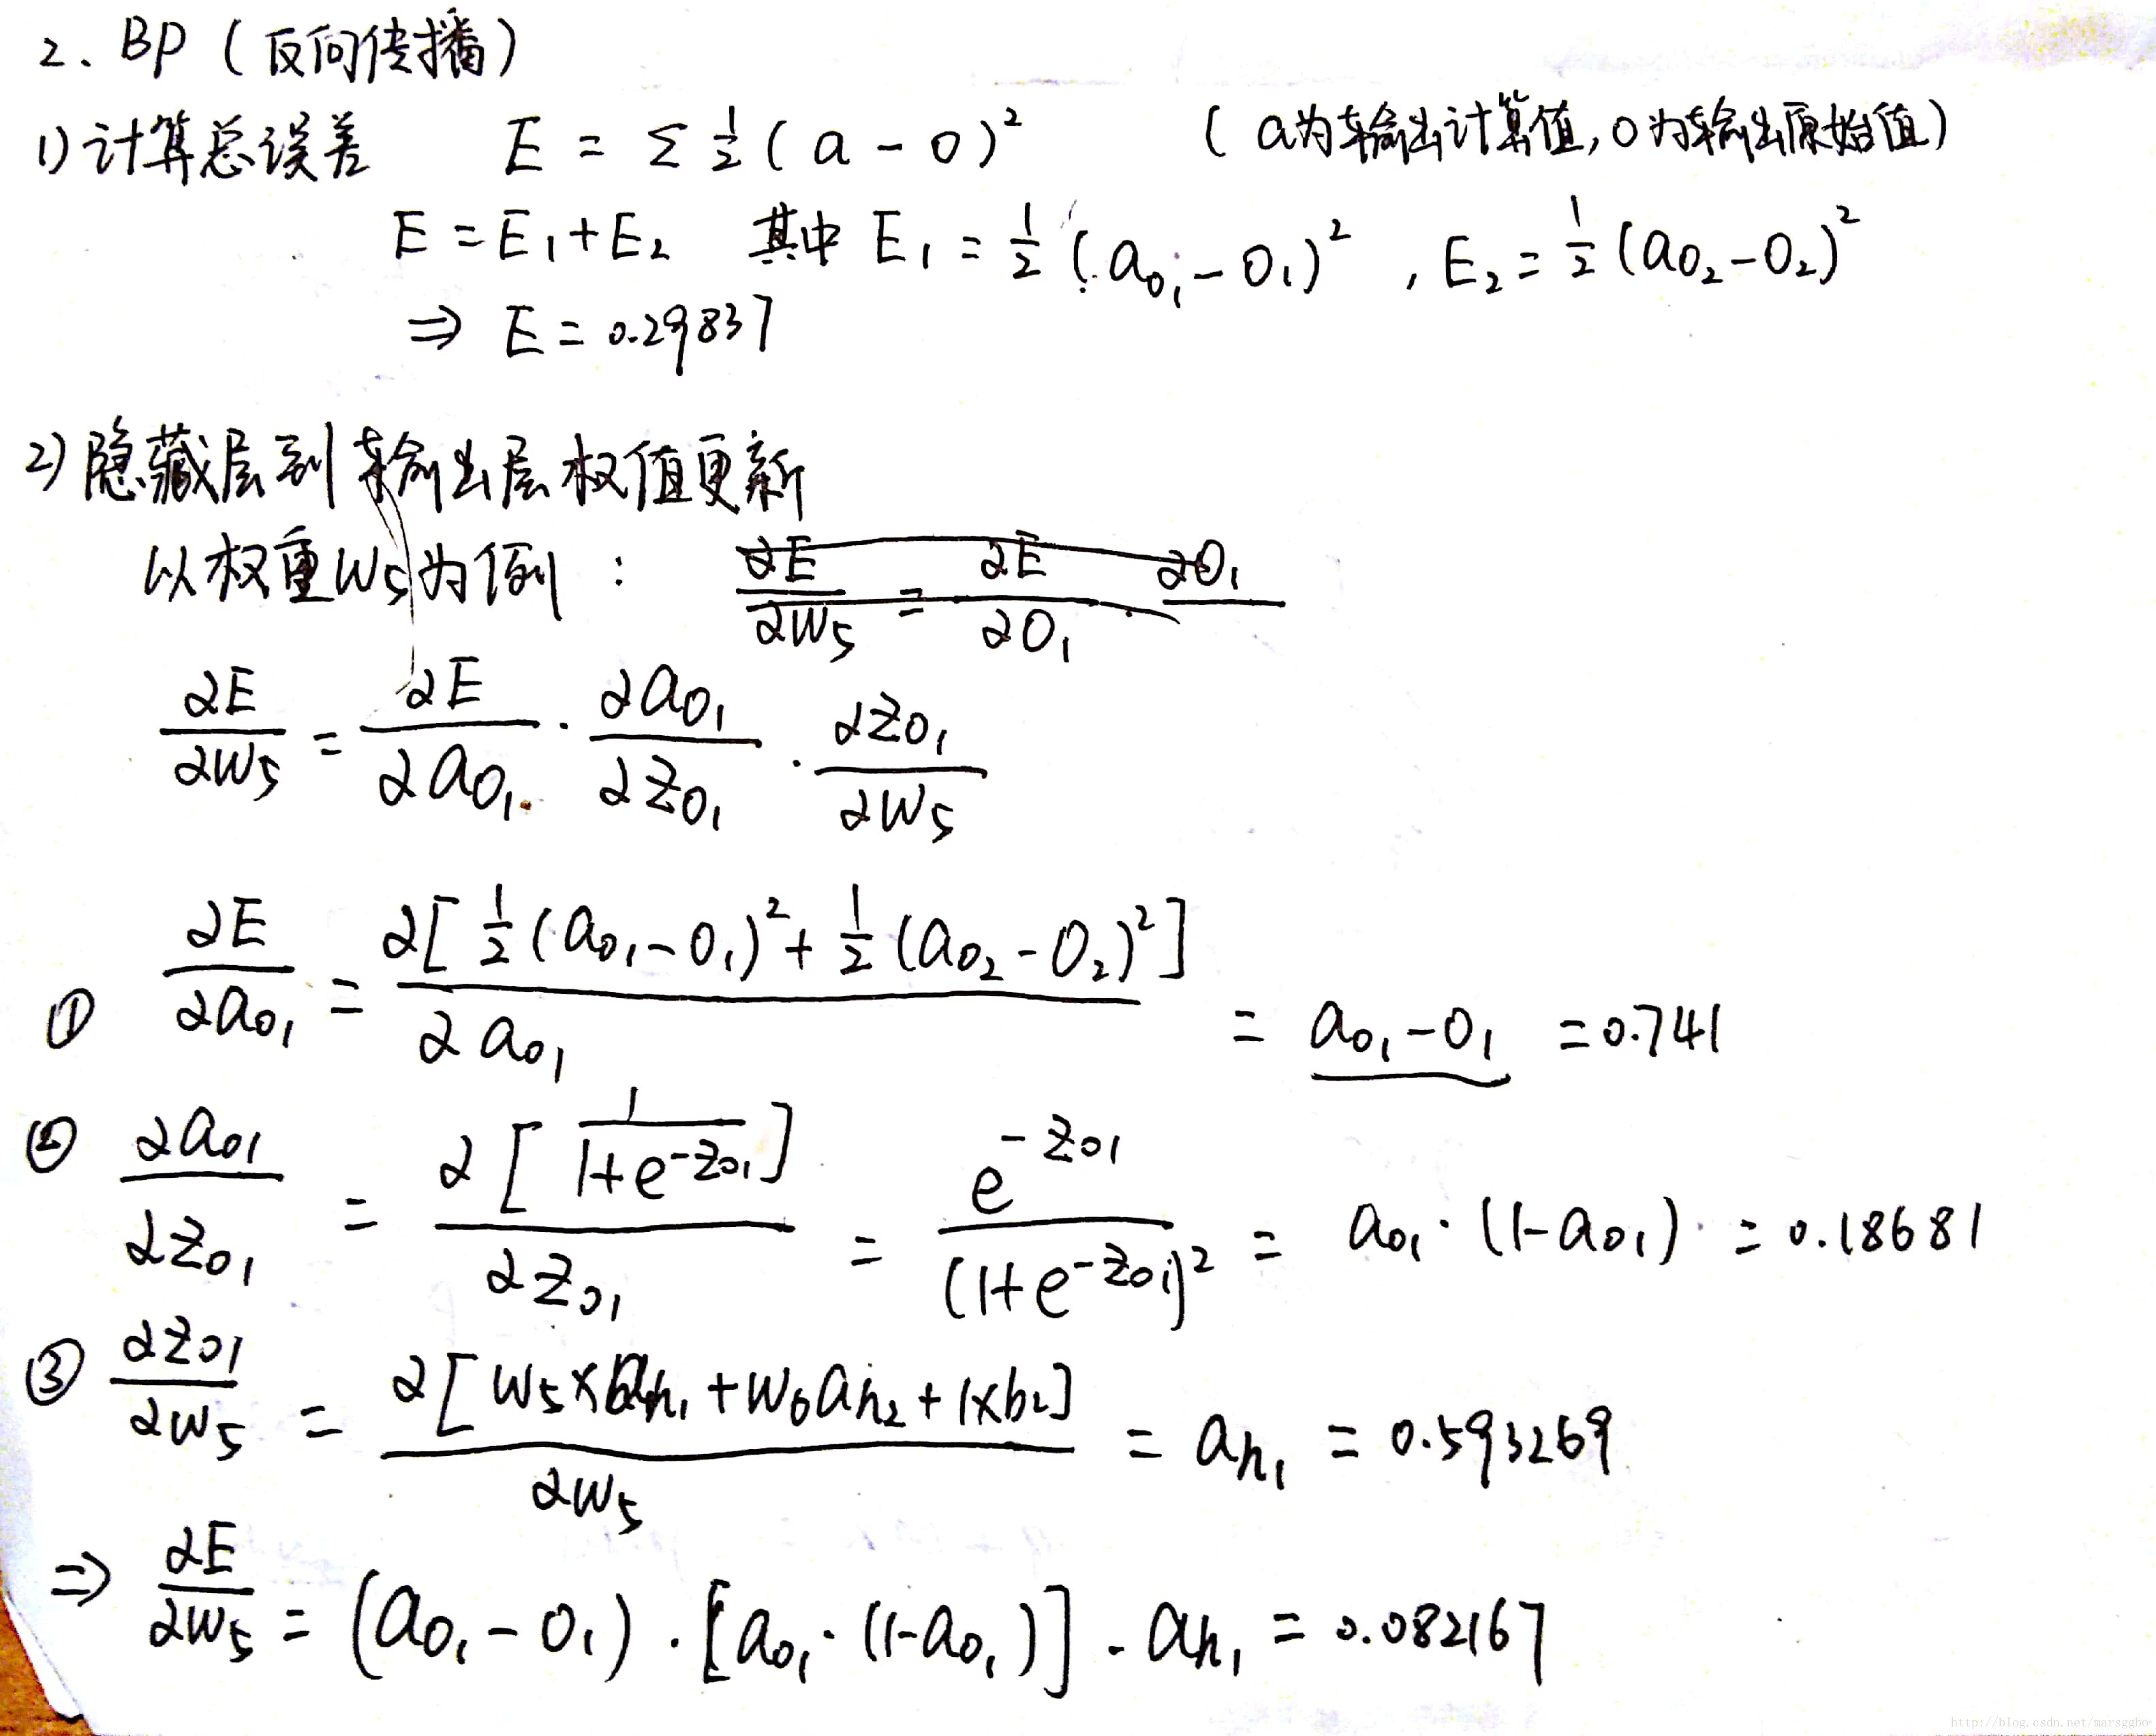 2、BP（反向传播）
1) 计算总误差 E = Σ ½ (a - o)² （a为输出计算值,o为输出原始值）
E = E₁ + E₂ 其中 E₁ = ½ (a₀₁ - O₁)² , E₂ = ½ (a₀₂ - O₂)²
⇒ E = 0.29837
2) 隐藏层到输出层权值更新
以权重W₅为例 : ∂E/∂W₅ = ∂E/∂O₁ · ∂O₁
∂E/∂W₅ = ∂E/∂a₀₁ · ∂a₀₁/∂z₀₁ · ∂z₀₁/∂W₅
① ∂E/∂a₀₁ = ∂[½(a₀₁ - O₁)² + ½(a₀₂ - O₂)²]/∂a₀₁ = a₀₁ - O₁ = 0.741
② ∂a₀₁/∂z₀₁ = ∂[1/(1+e^(-z₀₁))]/∂z₀₁ = e^(-z₀₁)/(1+e^(-z₀₁))² = a₀₁·(1-a₀₁) = 0.18681
③ ∂z₀₁/∂W₅ = ∂[W₅×aₕ₁ + W₆aₕ₂ + 1×b₂]/∂W₅ = aₕ₁ = 0.593269
⇒ ∂E/∂W₅ = (a₀₁ - O₁)·[a₀₁·(1-a₀₁)]·aₕ₁ = 0.082167
http://blog.csdn.net/marsggbo